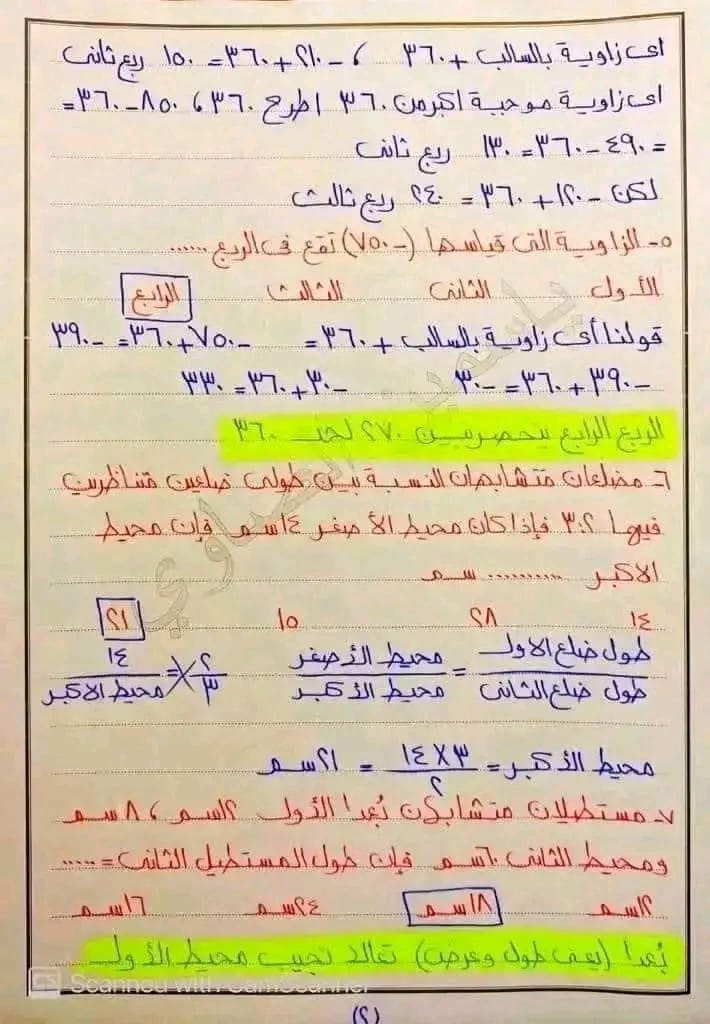 اى زاوية بالسالب + ٣٦٠ ، -٢١٠ + ٣٦٠ = ١٥٠ ربع ثانى
اى زاوية موجبة اكبر من ٣٦٠ اطرح ٣٦٠ ، ٨٥٠ - ٣٦٠ =
= ٤٩٠ - ٣٦٠ = ١٣٠ ربع ثانى
لكن -١٢٠ + ٣٦٠ = ٢٤٠ ربع ثالث
٥- الزاوية التى قياسها (-٧٥٠) تقع فى الربع ......
الأول الثانى الثالث الرابع
قولنا أى زاوية بالسالب + ٣٦٠ = -٧٥٠ + ٣٦٠ = -٣٩٠
-٣٩٠ + ٣٦٠ = -٣٠ -٣٠ + ٣٦٠ = ٣٣٠
الربع الرابع ينحصر بين ٢٧٠ لحد ٣٦٠
٦- مضلعان متشابهان النسبة بين طولى ضلعين متناظرين
فيها ٢:٣ فإذا كان محيط الأصغر ١٤ سم فإن محيط
الاكبر .......... سم
١٤ ٢٨ ١٥ ٢١
طول ضلع الاول / طول ضلع الثانى = محيط الأصغر / محيط الأكبر ٢/٣ = ١٤ / محيط الاكبر
محيط الأكبر = ٣×١٤ / ٢ = ٢١ سم
٧- مستطيلان متشابهان بُعدا الأول ١٢ سم ، ٨ سم
ومحيط الثانى ٦٠ سم فإن طول المستطيل الثانى = .....
١٢ سم ١٨ سم ٢٤ سم ١٦ سم
بُعدا (يعنى طول وعرض) تعالا نجيب محيط الأول
CS Scanned with CamScanner
(٢)